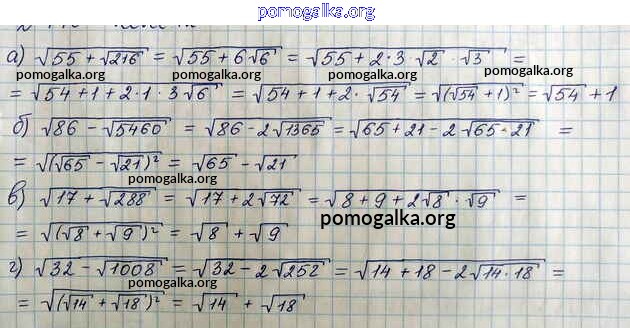 pomogalka.org
а) √(55 + √216) = √(55 + 6√6) = √(55 + 2·3√2 · √3) =
pomogalka.org pomogalka.org pomogalka.org
= √(54 + 1 + 2·1·3√6) = √(54 + 1 + 2·√54) = √((√54 + 1)²) = √54 + 1
б) √(86 − √5460) = √(86 − 2√1365) = √(65 + 21 − 2√(65·21)) =
= √((√65 − √21)²) = √65 − √21
pomogalka.org
в) √(17 + √288) = √(17 + 2√72) = √(8 + 9 + 2√8 · √9) =
pomogalka.org
= √((√8 + √9)²) = √8 + √9
pomogalka.org
г) √(32 − √1008) = √(32 − 2√252) = √(14 + 18 − 2√(14·18)) =
pomogalka.org
= √((√14 + √18)²) = √14 + √18